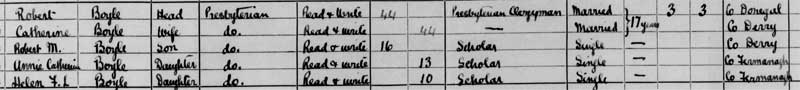 Robert Boyle Head Presbyterian Read & write 44 Presbyterian Clergyman Married 17 years 3 3 Co Donegal
Catherine Boyle Wife do. Read & write 44 — Married Co Derry
Robert M. Boyle Son do. Read & write 16 Scholar Single — Co Derry
Annie Catherine Boyle Daughter do. Read & write 13 Scholar Single — Co Fermanagh
Helen F. L Boyle Daughter do. Read & write 10 Scholar Single — Co Fermanagh